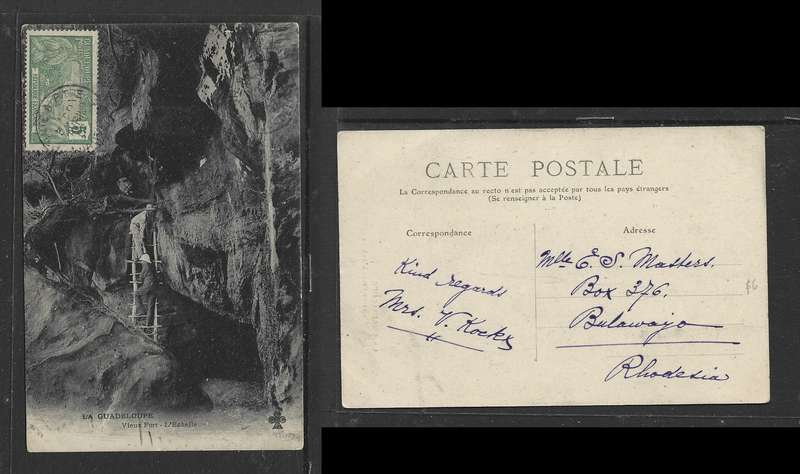 LA GUADELOUPE
Vieux Fort - L'Echelle
CARTE POSTALE
La Correspondance au recto n'est pas acceptée par tous les pays étrangers
(Se renseigner à la Poste)
Correspondance
Adresse
Kind regards
Mrs. V. Kockx
Mlle E. S. Masters.
Box 376.
Bulawayo
Rhodesia